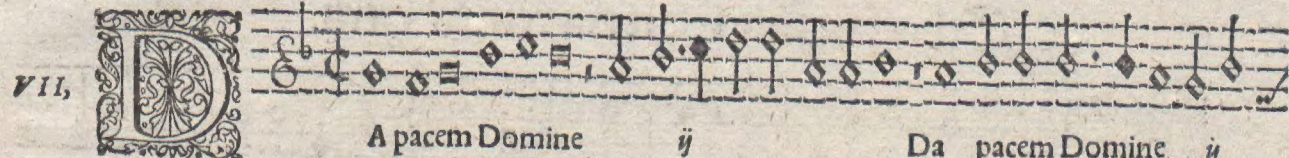 VII,
DA pacem Domine ij Da pacem Domine ij